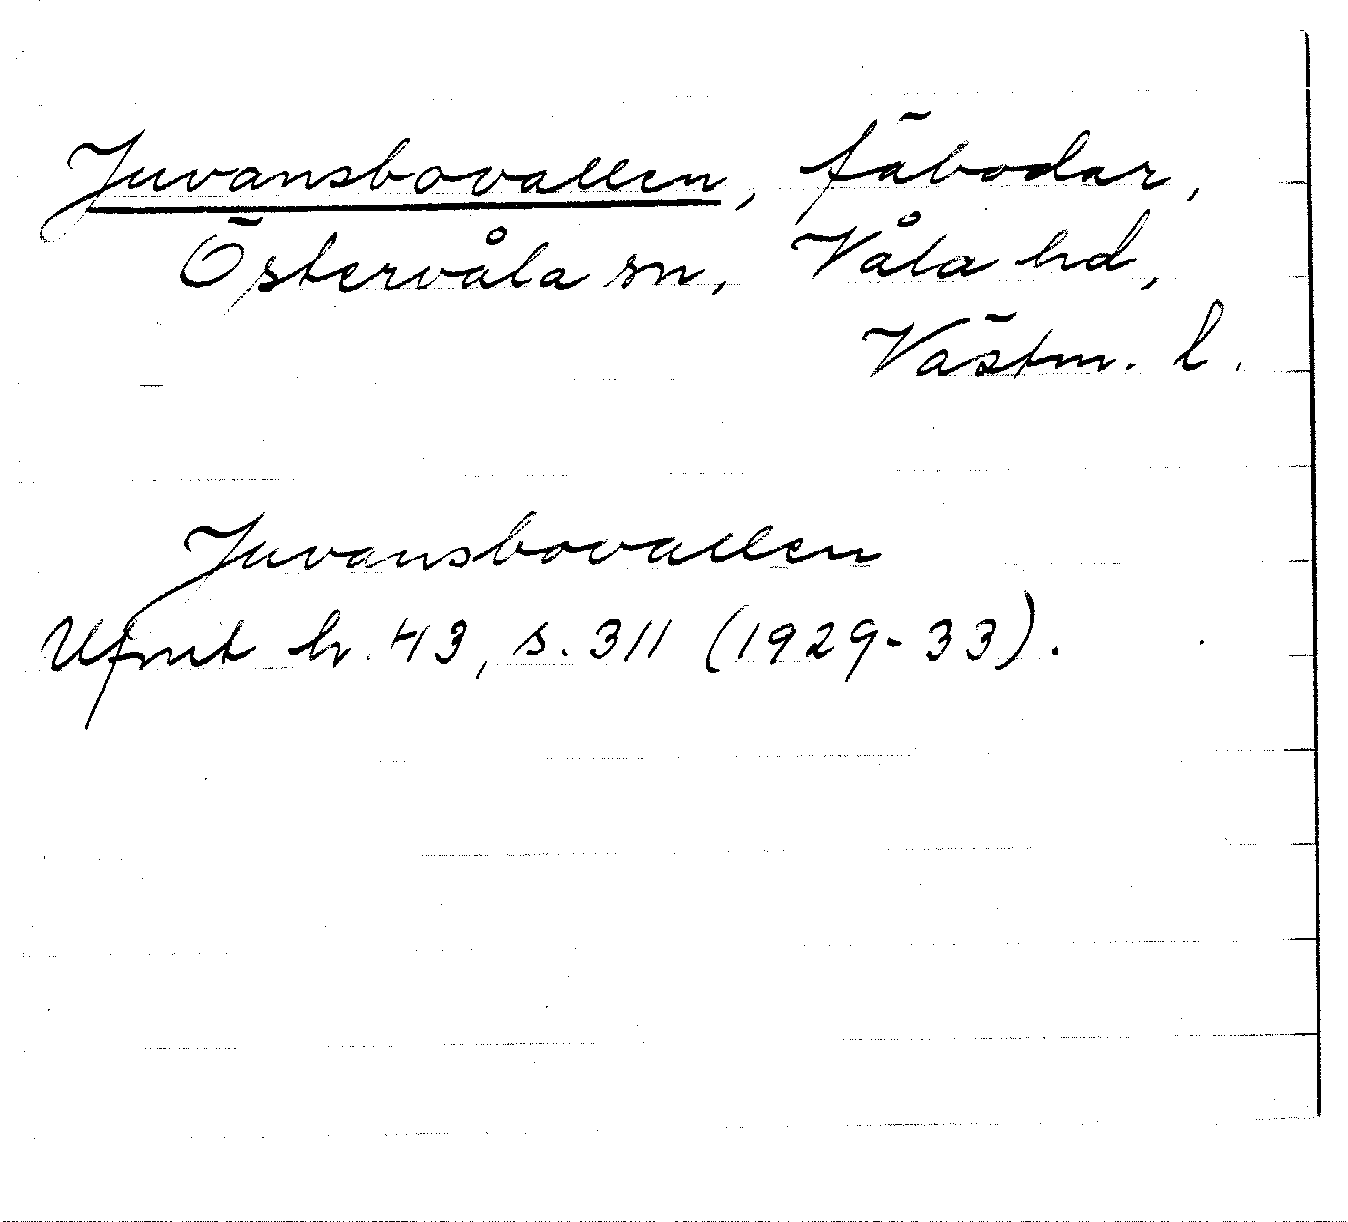 Juvansbovallen, fäbodar,
Östervåla sn, Våla hd,
Västm. l.
Juvansbovallen
Ufmt h. 43, s. 311 (1929-33).